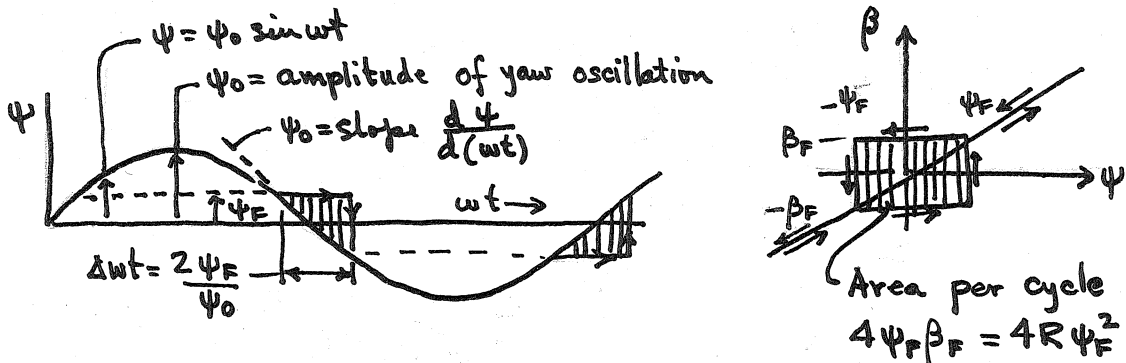 ψ = ψ₀ sin ωt
ψ₀ = amplitude of yaw oscillation
ψ₀ = slope dψ/d(ωt)
ψ
ψF
ωt →
Δωt = 2ψF/ψ₀
β
-ψF
ψF
βF
ψ
-βF
Area per cycle
4ψFβF = 4RψF²